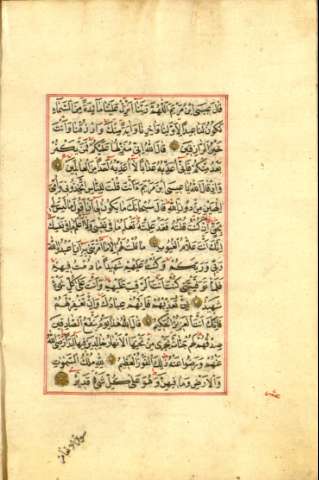 قال عيسى ابن مريم اللهم ربنا انزل علينا مائدة من السماء
تكون لنا عيدا لاولنا واخرنا واية منك وارزقنا وانت
خير الرازقين قال الله انى منزلها عليكم فمن يكفر
بعد منكم فانى اعذبه عذابا لا اعذبه احدا من العالمين
واذ قال الله يا عيسى ابن مريم ءانت قلت للناس اتخذونى وامى
الهين من دون الله قال سبحانك ما يكون لى ان اقول ما ليس لى
بحق ان كنت قلته فقد علمته تعلم ما فى نفسى ولا اعلم ما فى نفسك
انك انت علام الغيوب ما قلت لهم الا ما امرتنى به ان اعبدوا الله
ربى وربكم وكنت عليهم شهيدا ما دمت فيهم
فلما توفيتنى كنت انت الرقيب عليهم وانت على كل شىء
شهيد ان تعذبهم فانهم عبادك وان تغفر لهم
فانك انت العزيز الحكيم قال الله هذا يوم ينفع الصادقين
صدقهم لهم جنات تجرى من تحتها الانهار خالدين فيها ابدا رضى الله
عنهم ورضوا عنه ذلك الفوز العظيم لله ملك السموات
والارض وما فيهن وهو على كل شىء قدير